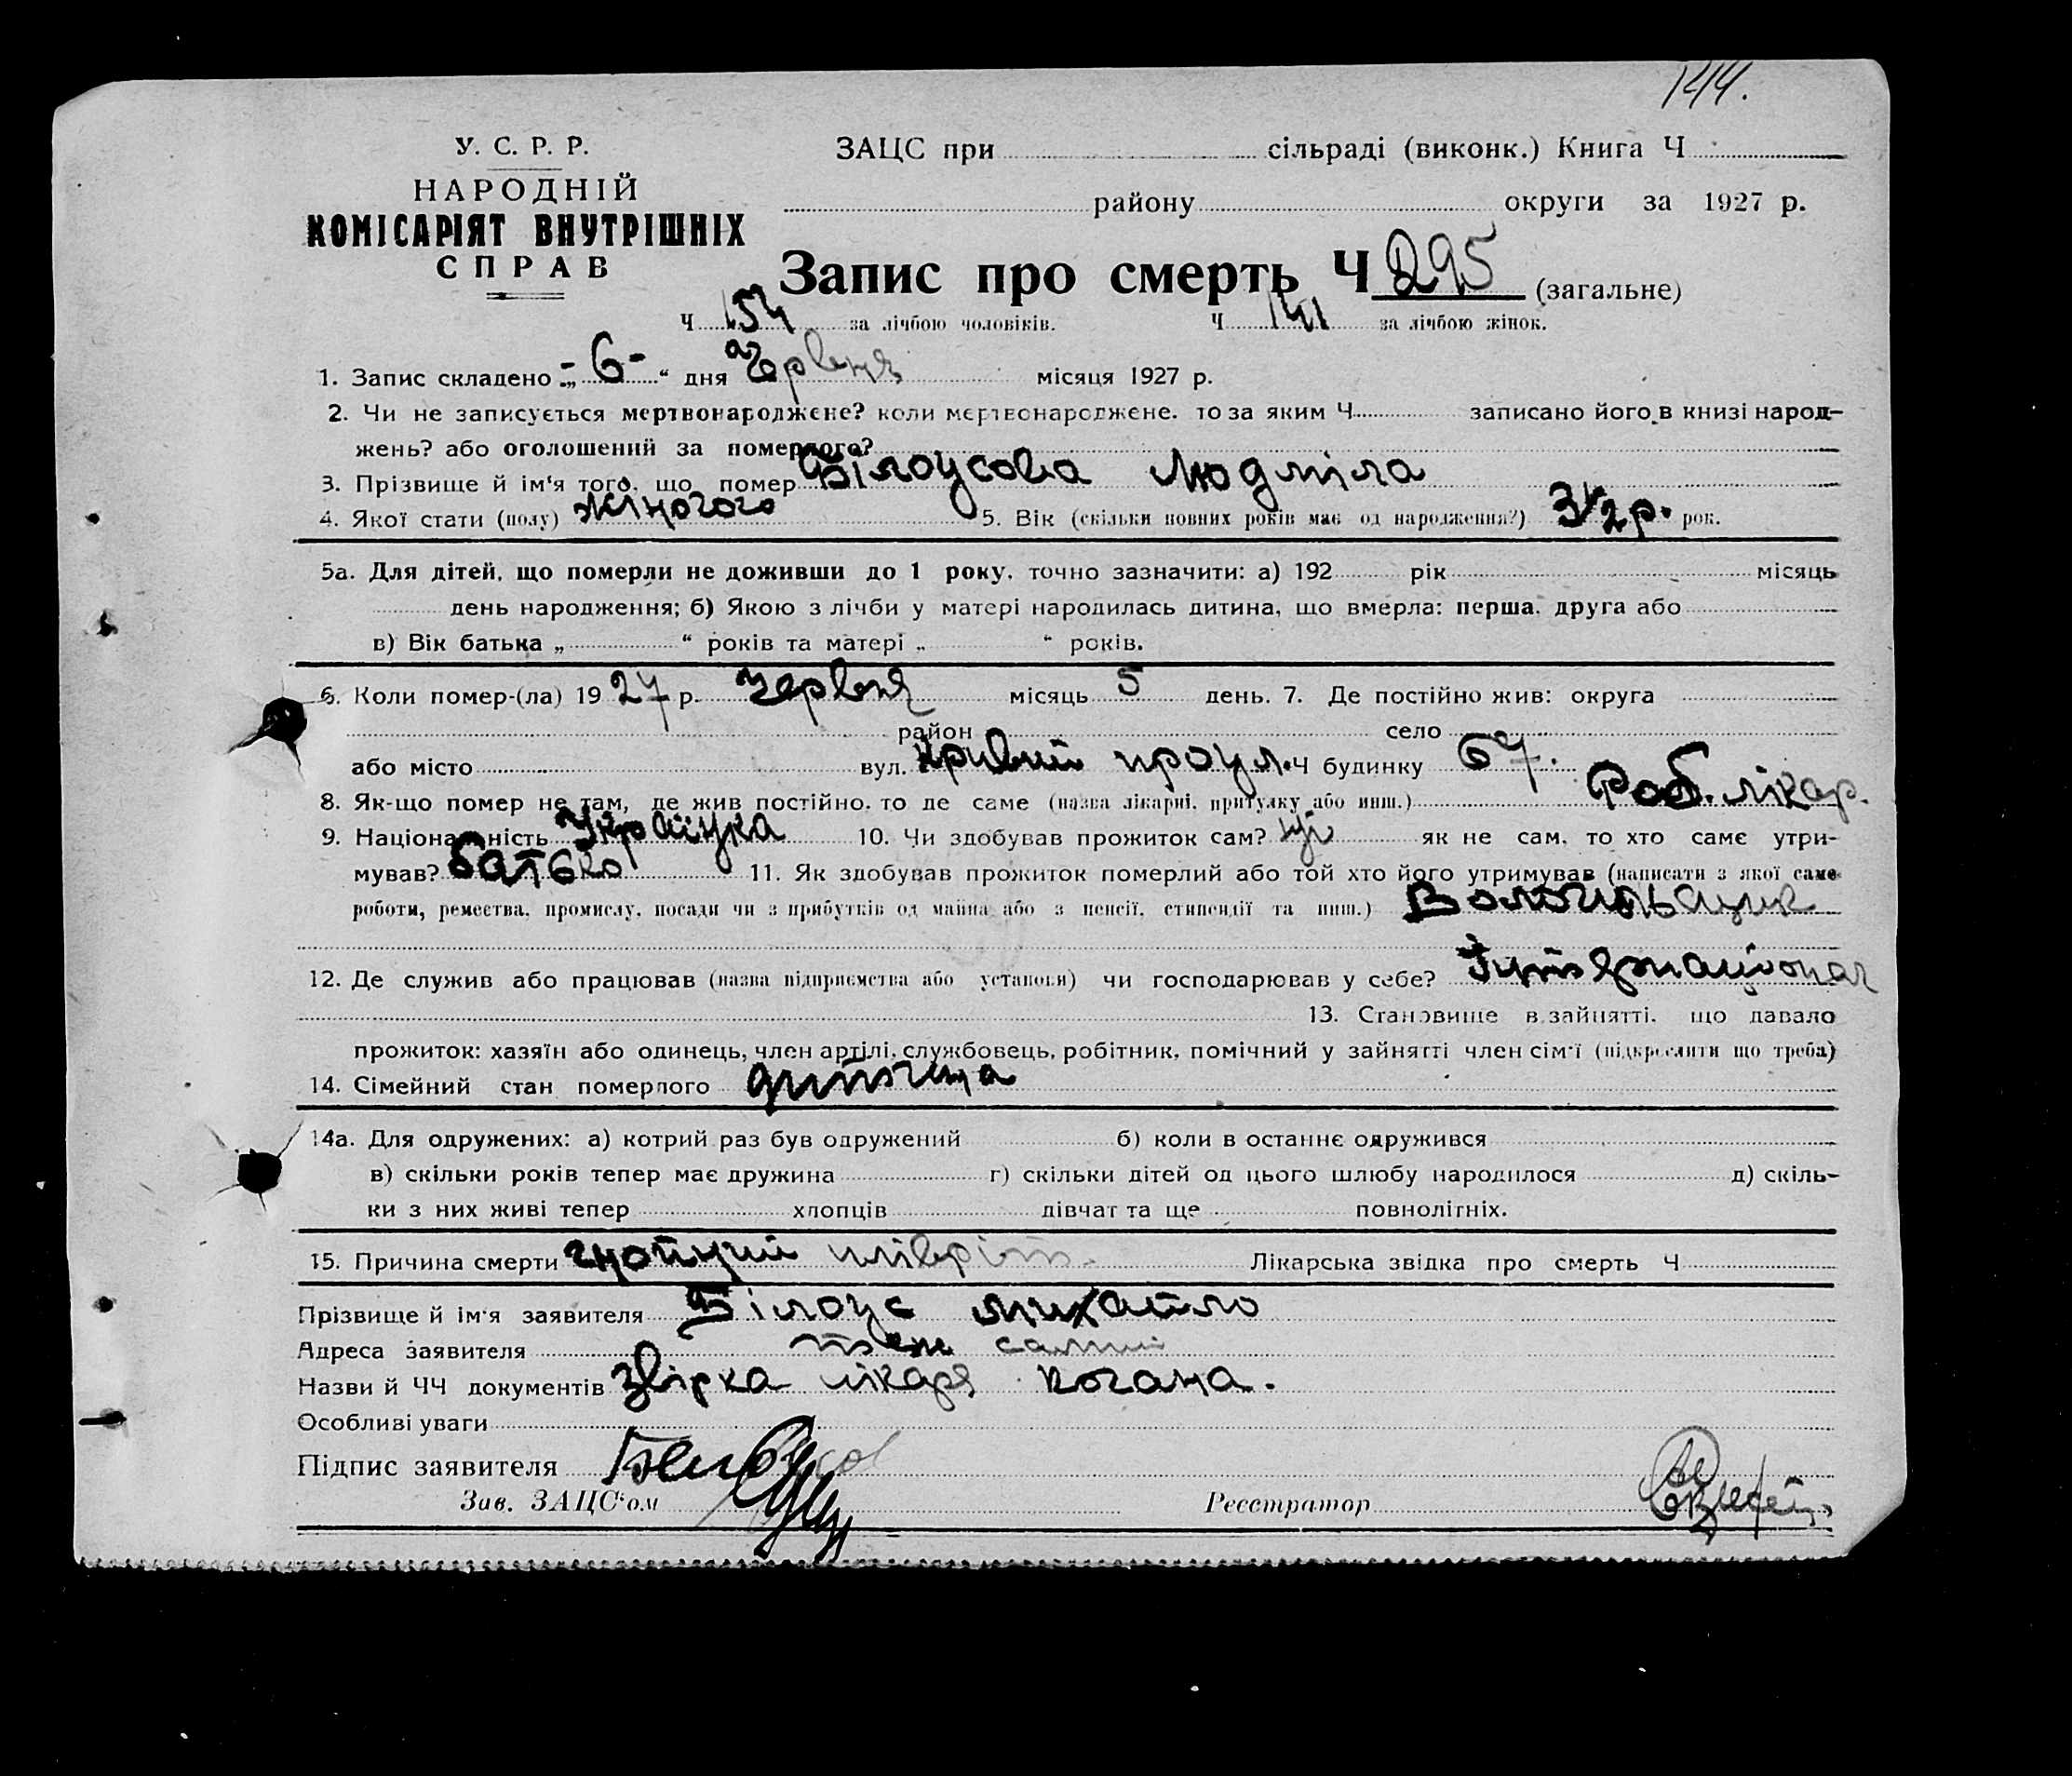 144.
У. С. Р. Р.
НАРОДНІЙ
КОМІСАРІЯТ ВНУТРІШНІХ
СПРАВ
ЗАЦС при сільраді (виконк.) Книга Ч
району округи за 1927 р.
Запис про смерть Ч 295 (загальне)
Ч 154 за лічбою чоловіків. Ч 141 за лічбою жінок.
1. Запис складено „-6-“ дня Червня місяця 1927 р.
2. Чи не записується мертвонароджене? коли мертвонароджене, то за яким Ч записано його в книзі народ-
жень? або оголошений за померлого?
3. Прізвище й ім'я того, що помер Білоусова Людміла
4. Якої стати (полу) жіночого 5. Вік (скільки повних років має од народження?) 3 1/2 р. рок.
5а. Для дітей, що померли не доживши до 1 року, точно зазначити: а) 192 рік місяць
день народження; б) Якою з лічби у матері народилась дитина, що вмерла: перша, друга або
в) Вік батька „ “ років та матері „ “ років.
6. Коли помер-(ла) 19 27 р. Червня місяць 5 день. 7. Де постійно жив: округа
район село
або місто вул. Кривий проул. Ч будинку 67.
8. Як-що помер не там, де жив постійно, то де саме (назва лікарні, притулку або инш.) Роб. лікар.
9. Національність Українка 10. Чи здобував прожиток сам? ні як не сам, то хто саме утри-
мував? батько 11. Як здобував прожиток померлий або той хто його утримував (написати з якої саме
роботи, ремества, промислу, посади чи з прибутків од майна або з пенсії, стипендії та инш.) Волочильщик
12. Де служив або працював (назва підприємства або установи) чи господарював у себе? Інтернаціонал
13. Становище в зайнятті, що давало
прожиток: хазяїн або одинець, член артілі, службовець, робітник, помічний у зайнятті член сім'ї (підкреслити що треба)
14. Сімейний стан померлого дитина
14а. Для одружених: а) котрий раз був одружений б) коли в останнє одружився
в) скільки років тепер має дружина г) скільки дітей од цього шлюбу народилося д) скіль-
ки з них живі тепер хлопців дівчат та ще повнолітніх.
15. Причина смерти гнойний плівріт. Лікарська звідка про смерть Ч
Прізвище й ім'я заявителя Білоус Михайло
Адреса заявителя теж самий
Назви й ЧЧ документів Звірка лікаря Когана.
Особливі уваги
Підпис заявителя Белоусов
Зав. ЗАЦС'ом Реєстратор